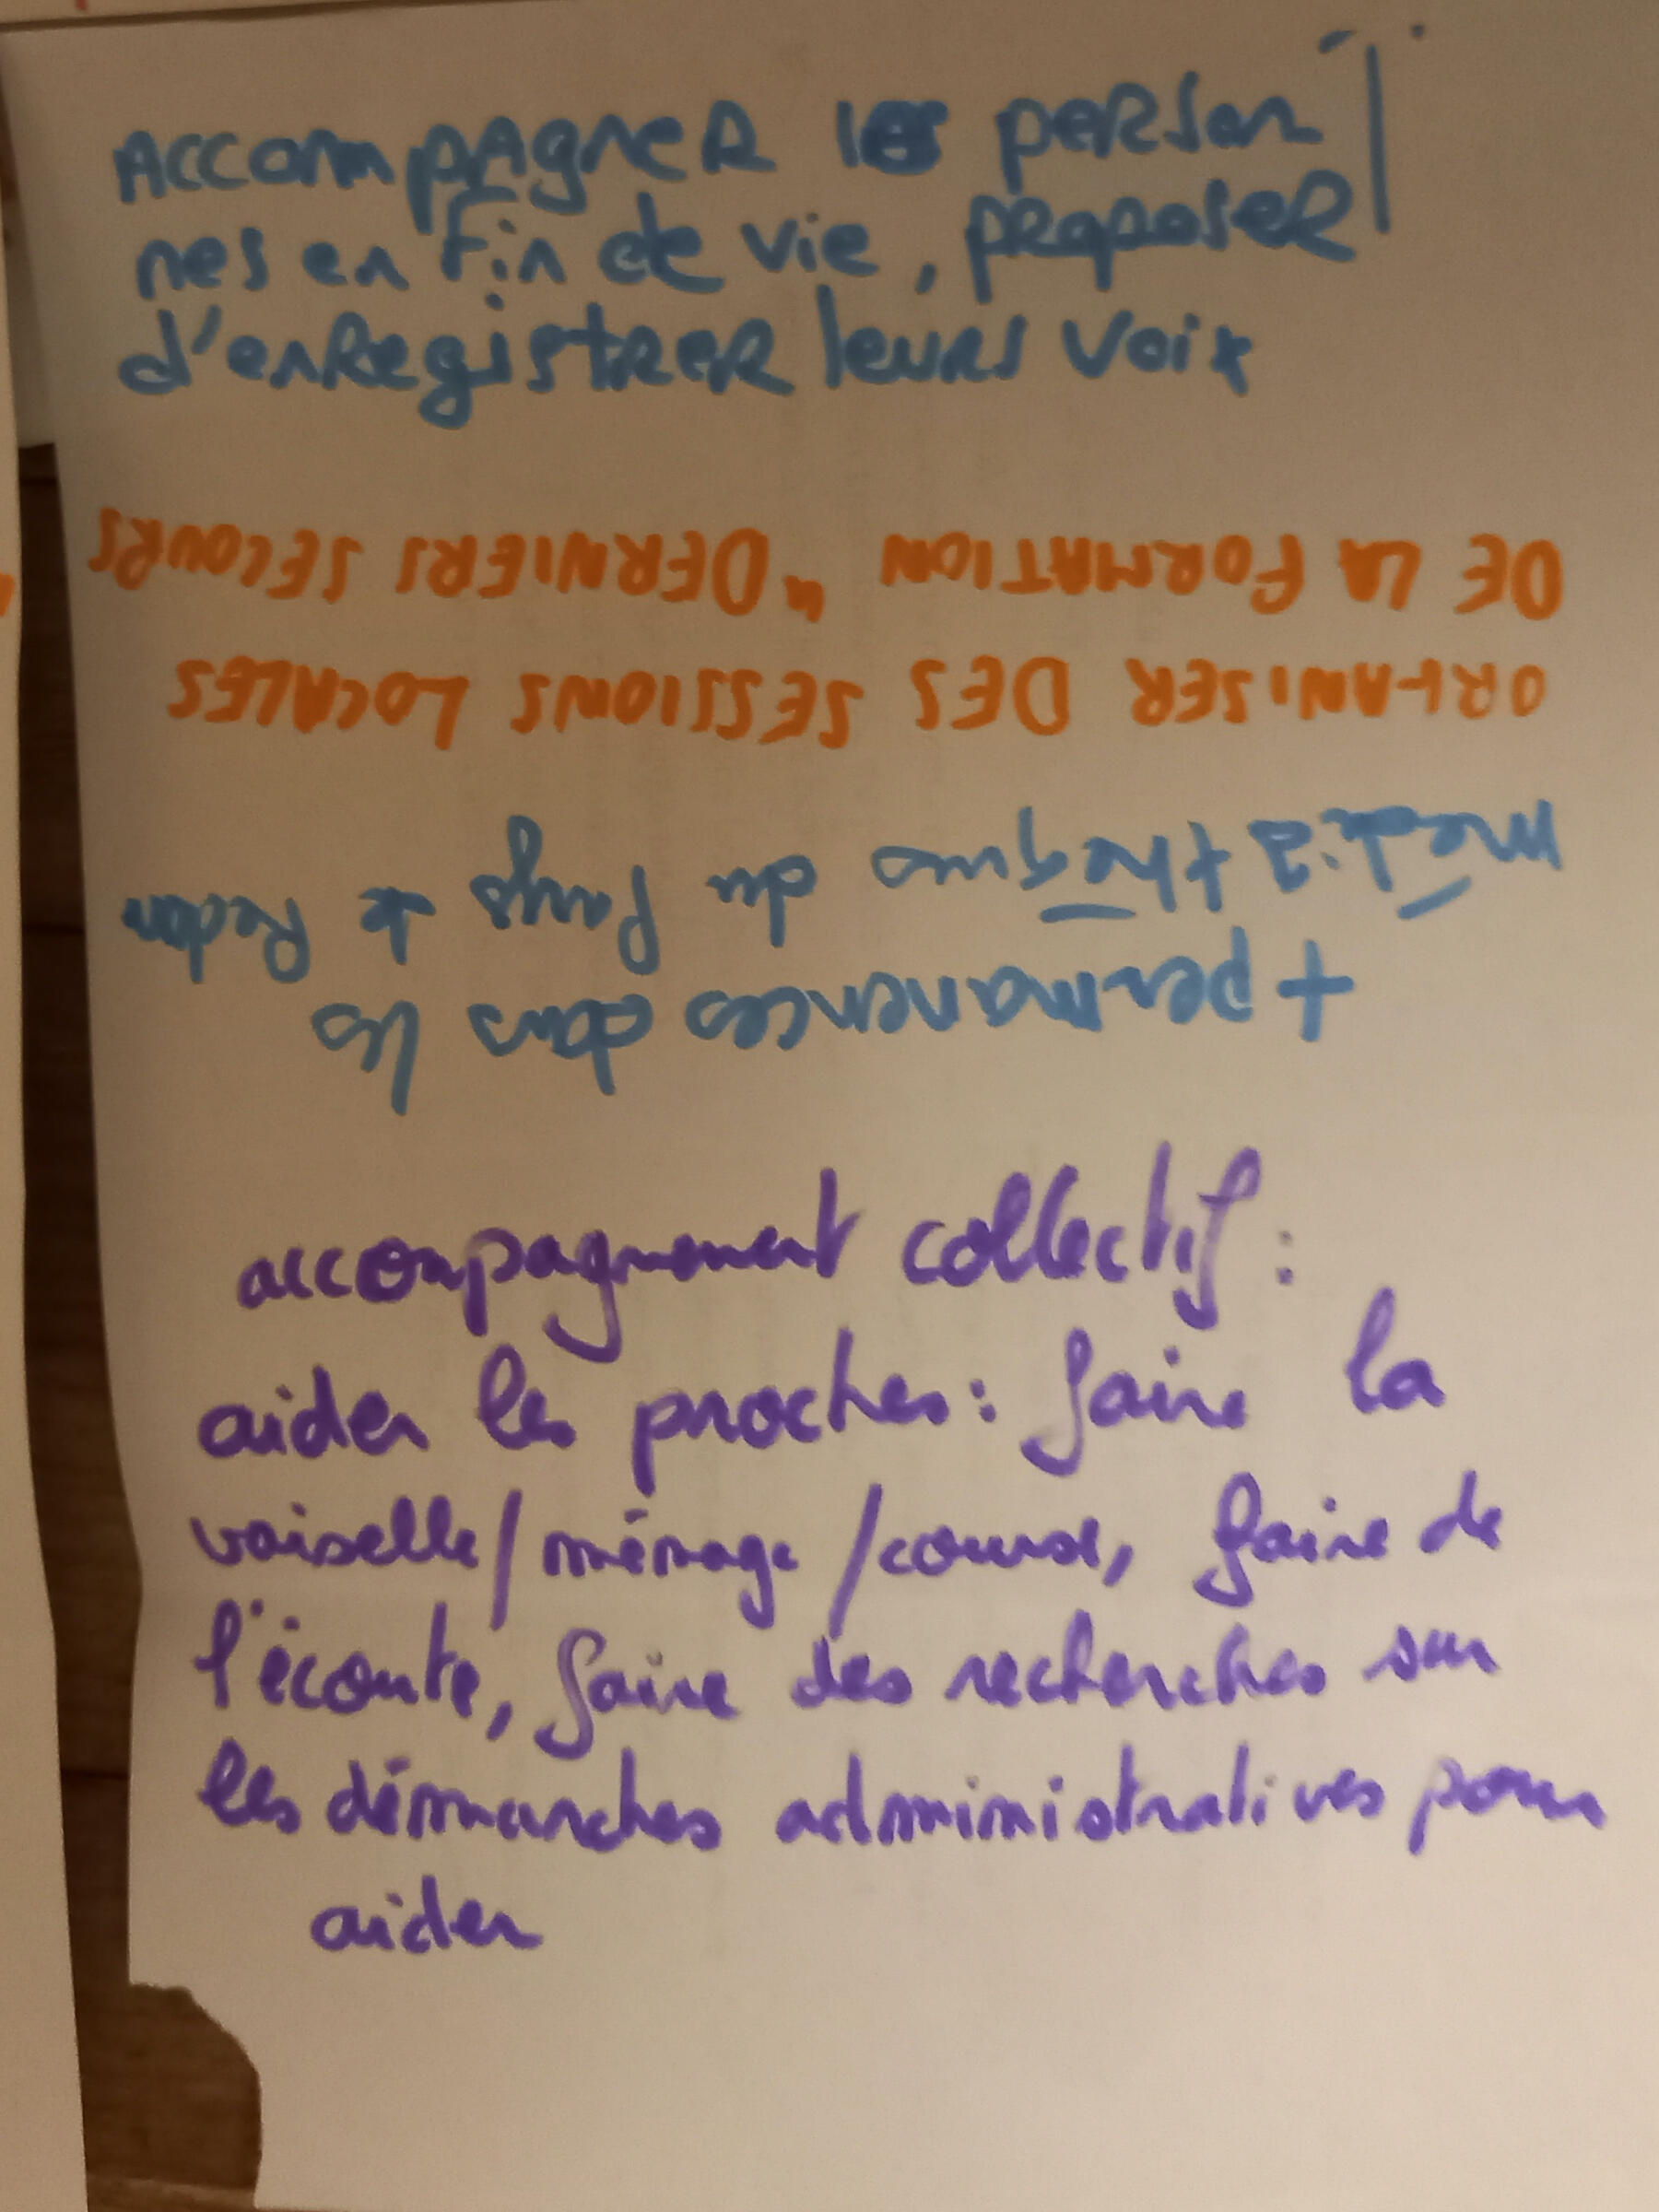 Accompagner les person
nes en fin de vie, proposer
d'enregistrer leurs voix
+ permanences dans les
médiathèques du Pays de Redon
ORGANISER DES SESSIONS LOCALES
DE LA FORMATION "DERNIERS SECOURS
accompagnement collectif :
aider les proches : faire la
vaiselle / ménage / courses, faire de
l'écoute, faire des recherches sur
les démarches administratives pour
aider